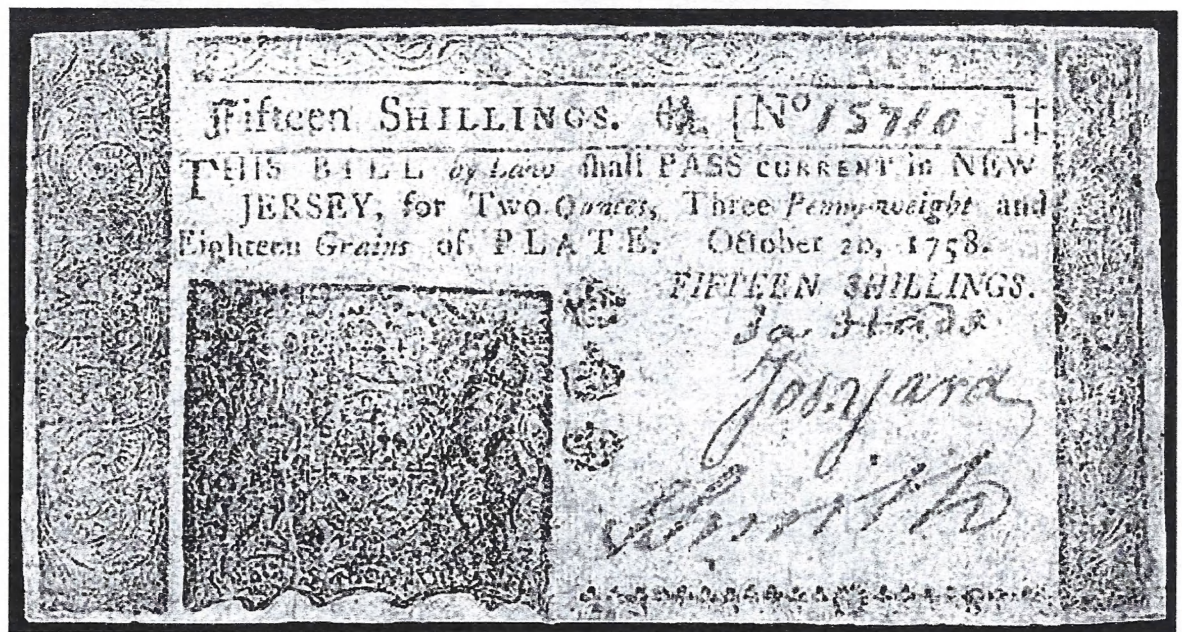 Fifteen SHILLINGS. [No 15710 ]‡
THIS BILL by Law shall PASS CURRENT in NEW
JERSEY, for Two Ounces, Three Penny-weight and
Eighteen Grains of PLATE. October 20, 1758.
FIFTEEN SHILLINGS.
Jos. Yard
SSmith